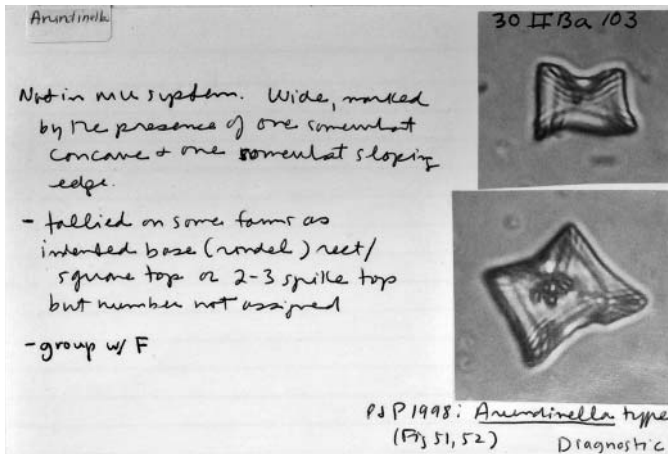 Arundinella
30 II Ba 103
Not in MU system. Wide, marked
by the presence of one somewhat
concave + one somewhat sloping
edge.
- tallied on some forms as
indented base (rondel) rect/
square top or 2-3 spike top
but number not assigned
- group w/ F
P & P 1998: Arundinella type
(Fig 51, 52)
Diagnostic